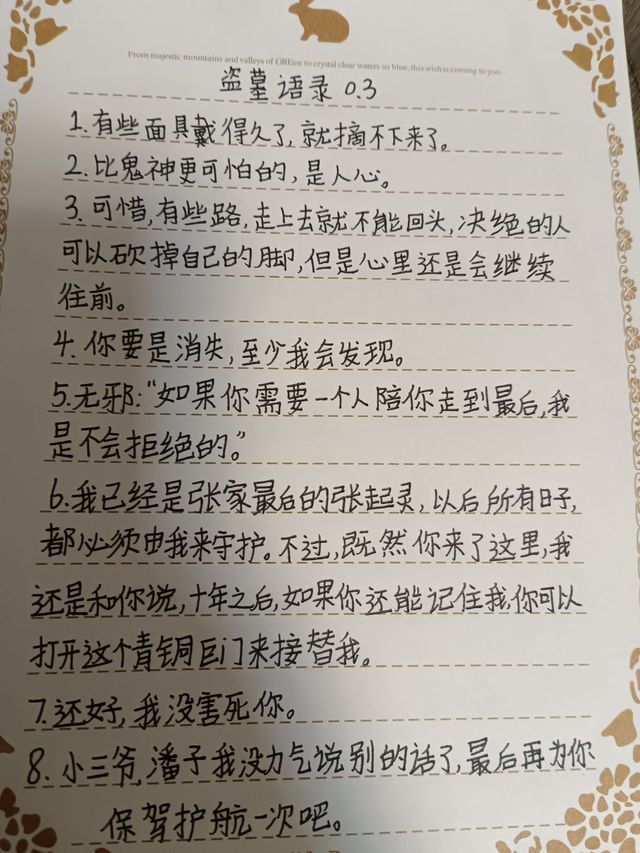 From majestic mountains and valleys of GREen to crystal clear waters so blue, this wish is coming to you.
盗墓语录 0.3
1.有些面具戴得久了,就摘不下来了。
2.比鬼神更可怕的,是人心。
3.可惜,有些路,走上去就不能回头,决绝的人
可以砍掉自己的脚,但是心里还是会继续
往前。
4.你要是消失,至少我会发现。
5.无邪:“如果你需要一个人陪你走到最后,我
是不会拒绝的。”
6.我已经是张家最后的张起灵,以后所有日子,
都必须由我来守护。不过,既然你来了这里,我
还是和你说,十年之后,如果你还能记住我,你可以
打开这个青铜巨门来接替我。
7.还好,我没害死你。
8.小三爷,潘子我没力气说别的话了,最后再为你
保驾护航一次吧。